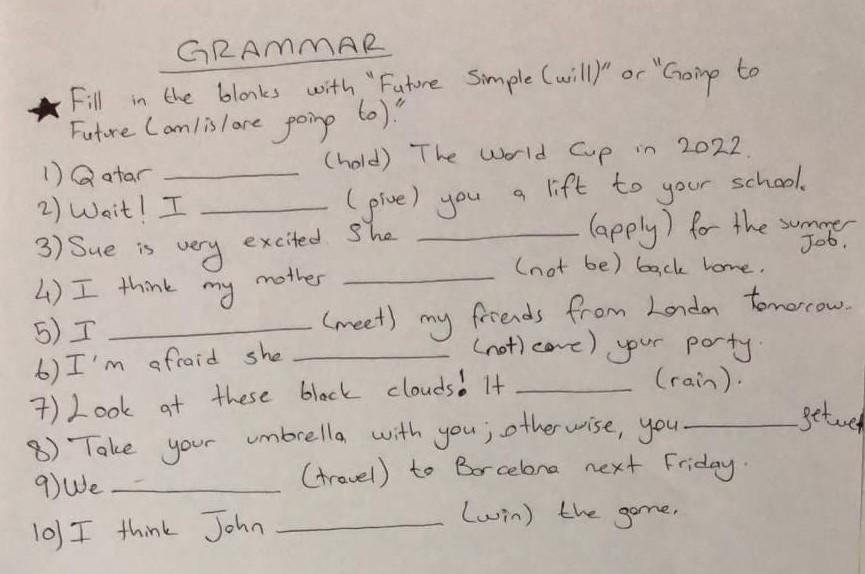 GRAMMAR
★ Fill in the blanks with "Future Simple (will)" or "Going to
Future (am/is/are going to)."
1) Qatar ________ (hold) The World Cup in 2022.
2) Wait! I ________ (give) you a lift to your school.
3) Sue is very excited. She ________ (apply) for the summer
Job.
4) I think my mother ________ (not be) back home.
5) I ________ (meet) my friends from London tomorrow.
6) I'm afraid she ________ (not) come) your party.
7) Look at these black clouds! It ________ (rain).
8) Take your umbrella with you; otherwise, you ________ get wet
9) We ________ (travel) to Barcelona next Friday.
10) I think John ________ (win) the game.